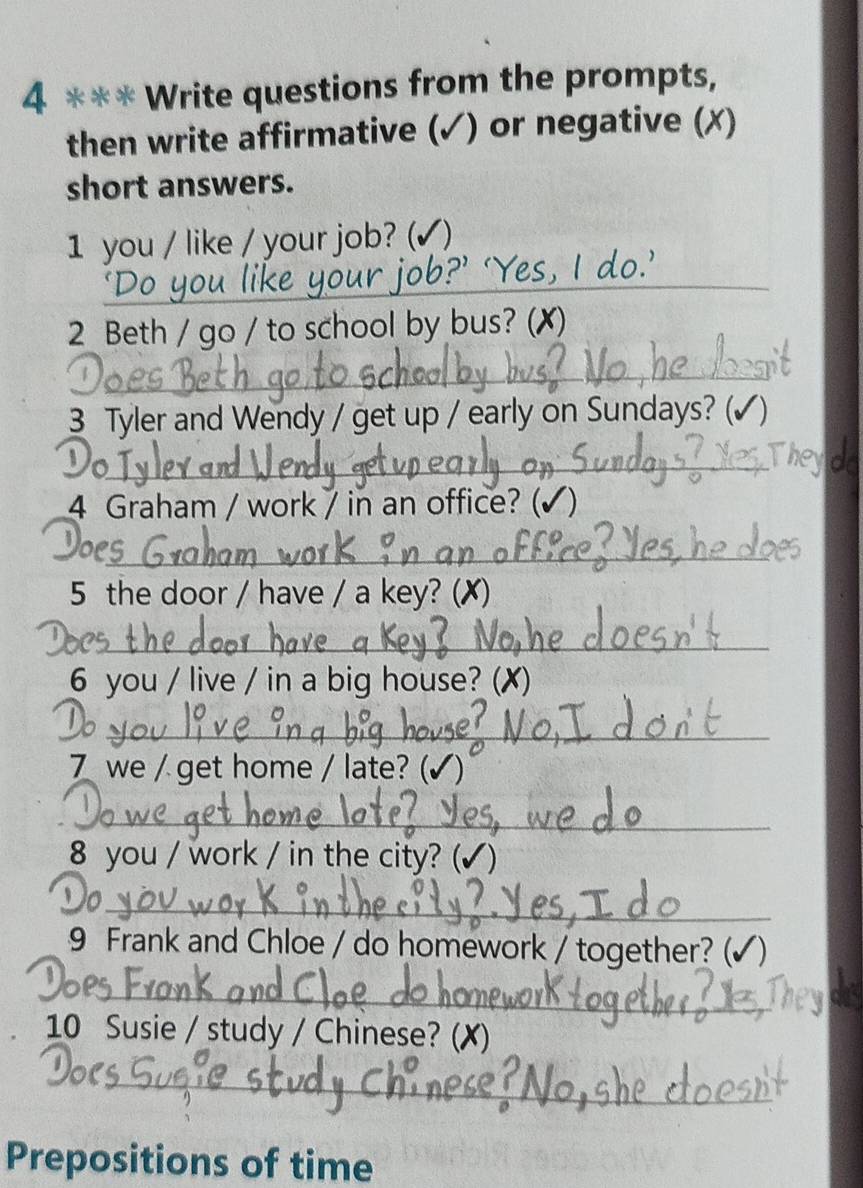 4 *** Write questions from the prompts,
then write affirmative (✓) or negative (✗)
short answers.
1 you / like / your job? (✓)
‘Do you like your job?’ ‘Yes, I do.’
2 Beth / go / to school by bus? (✗)
Does Beth go to school by bus? No, he doesn't
3 Tyler and Wendy / get up / early on Sundays? (✓)
Do Tyler and Wendy get up early on Sundays? Yes, They do
4 Graham / work / in an office? (✓)
Does Graham work in an office? Yes, he does
5 the door / have / a key? (✗)
Does the door have a key? No, he doesn't
6 you / live / in a big house? (✗)
Do you live in a big house? No, I don't
7 we / get home / late? (✓)
Do we get home late? Yes, we do
8 you / work / in the city? (✓)
Do you work in the city? Yes, I do
9 Frank and Chloe / do homework / together? (✓)
Does Frank and Cloe do homework together? Yes, They do
10 Susie / study / Chinese? (✗)
Does Susie study Chinese? No, she doesn't
Prepositions of time